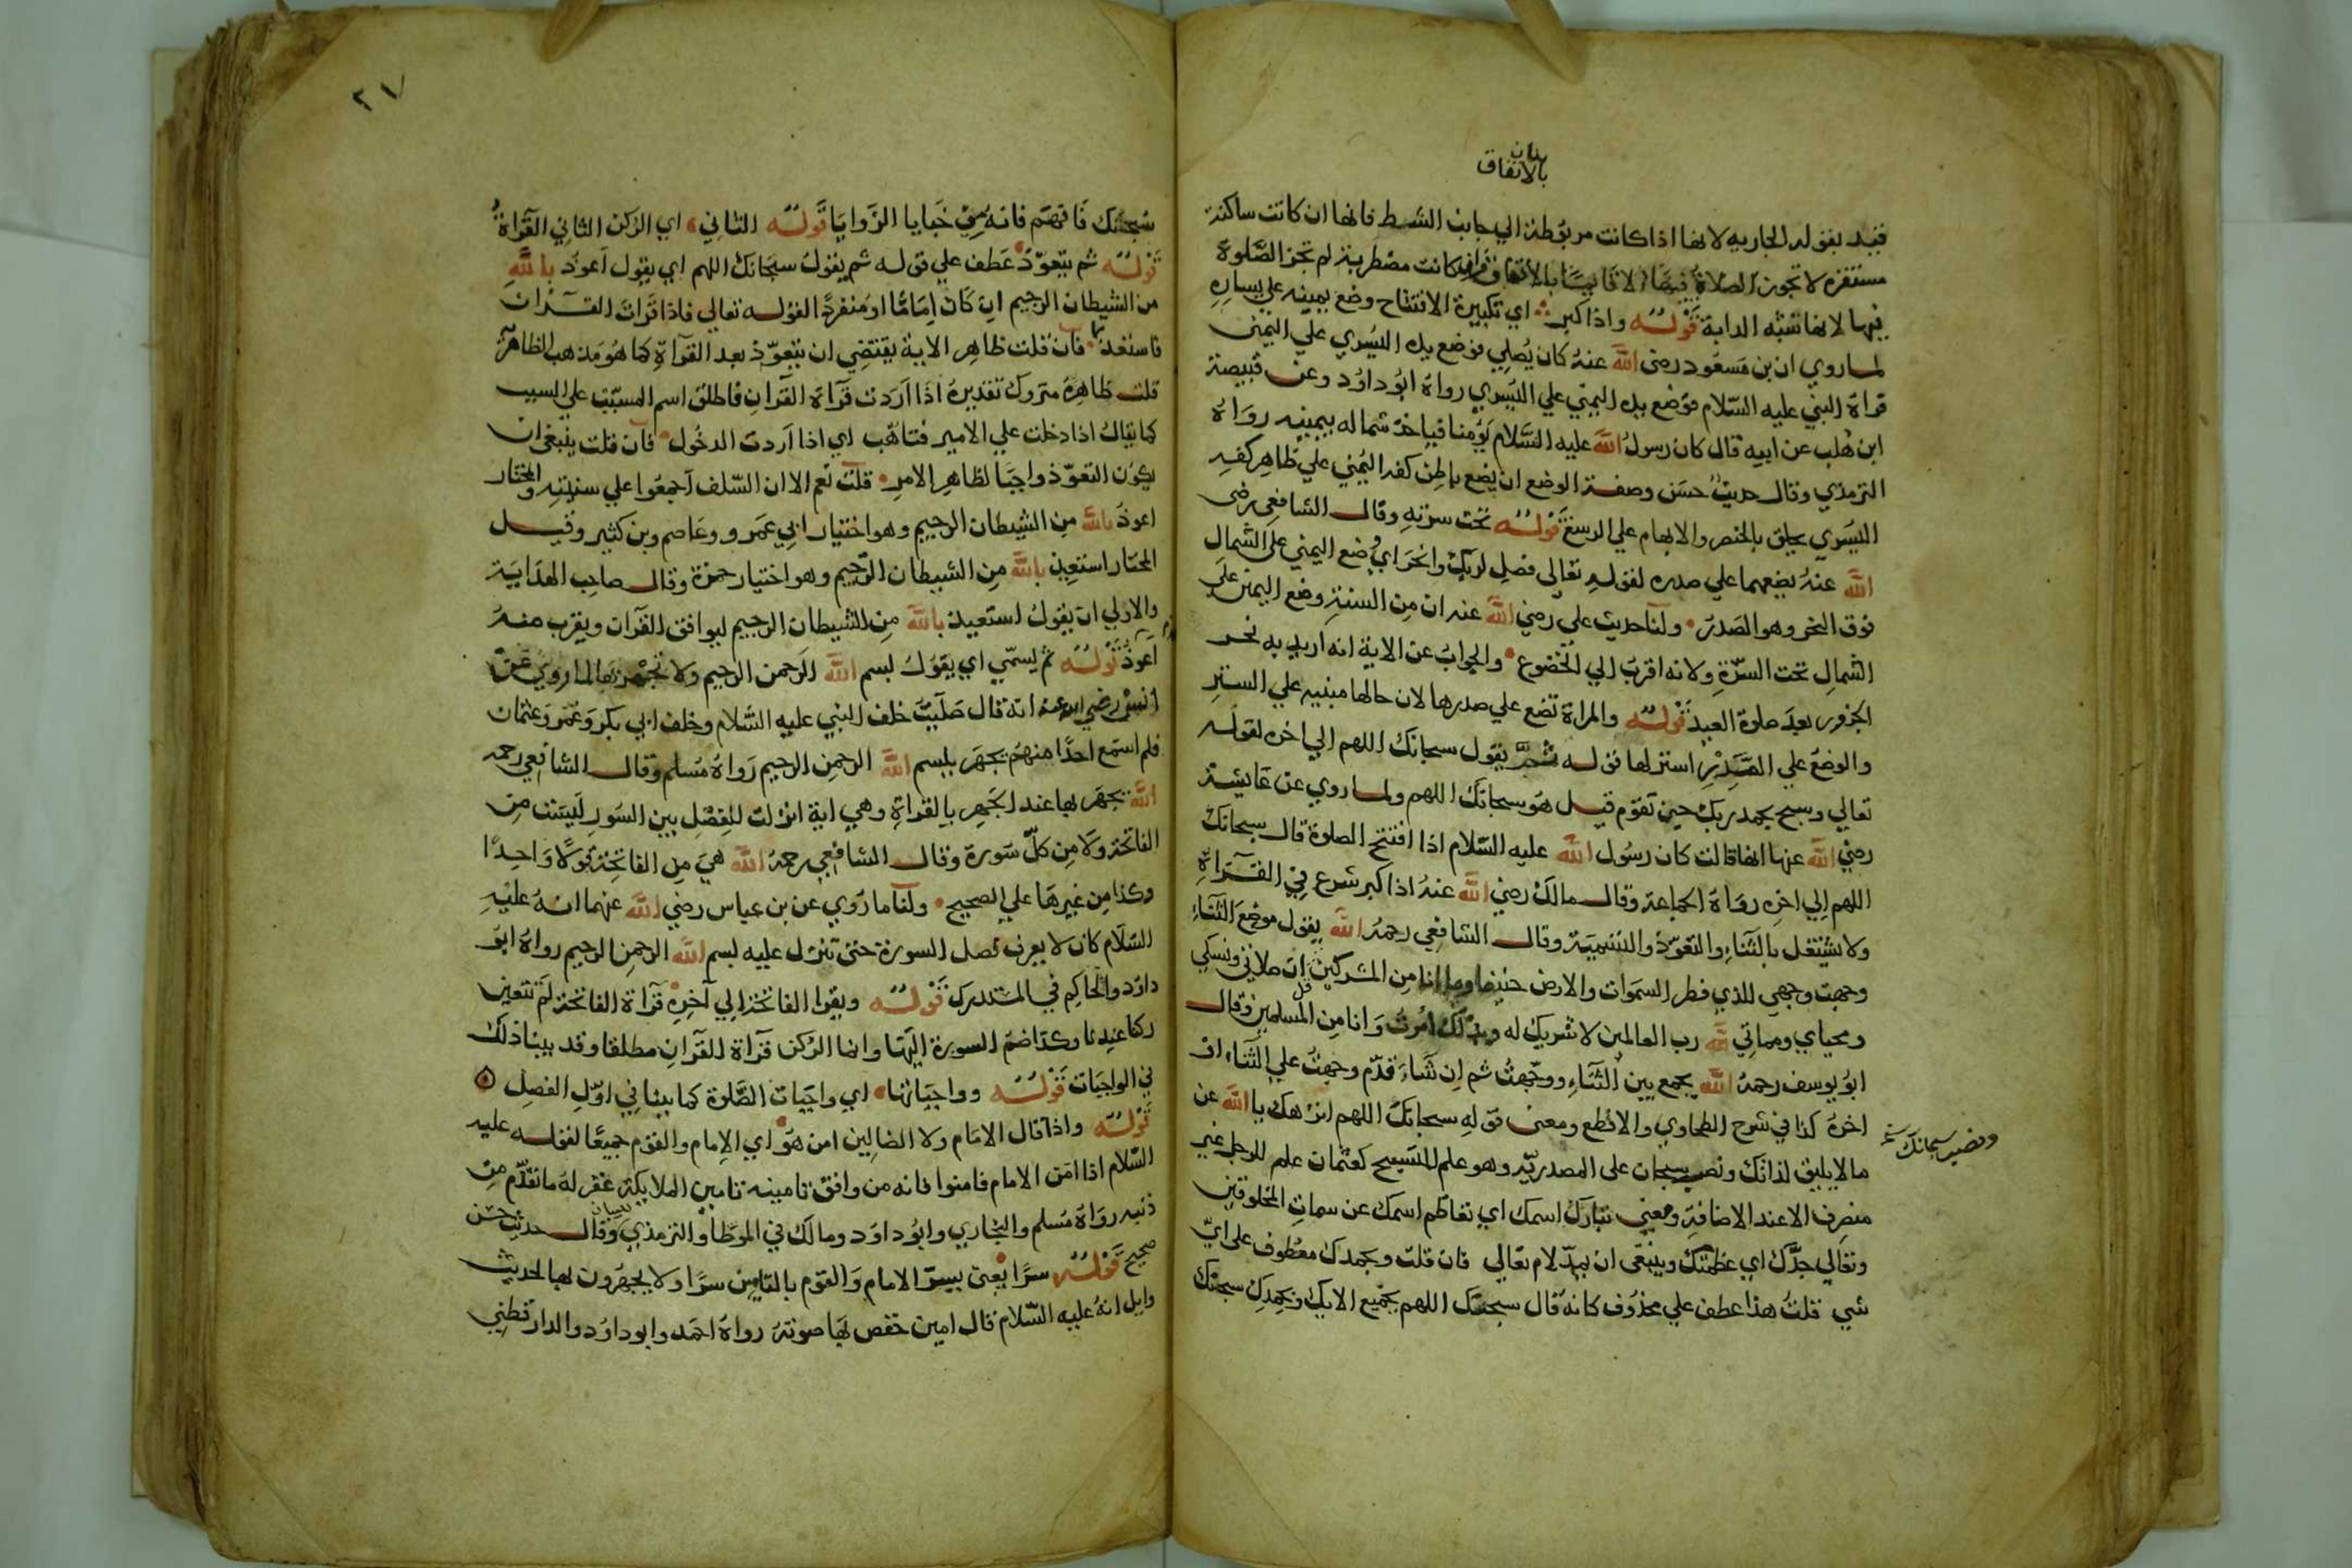 بيان
بالاتفاق
قيد بقوله الجاريه لانها اذا كانت مربوطة الي جانب الشط فانها ان كانت ساكنة
مستقره لا تجوز الصلاة فيها الا قايما بالاتفاق وان كانت مضطربة لم تجز الصلوة
فيها لانها تشبه الدابة قوله واذا كبر اي تكبيرة الافتتاح وضع يمينه علي يساره
لما روي ان بن مسعود رضى الله عنه كان يصلي فوضع يده اليسري علي اليمنى
فراه النبي عليه السلام فوضع يده اليمني علي اليسري رواه ابو داود وعن قبيصة
ابن هلب عن ابيه قال كان رسول الله عليه السلام يؤمنا فياخذ شماله بيمينه رواه
الترمذي وقال حديث حسن وصفة الوضع ان يضع باطن كفه اليمني علي ظاهر كفه
اليسري يحلق بالخنصر والابهام علي الرسغ قوله تحت سرته وقال الشافعى رضى
الله عنه يضعهما علي صدره لقوله تعالى فصل لربك وانحر اي وضع اليمني على الشمال
فوق النحر وهو الصدر ولنا حديث على رضي الله عنه ان من السنة وضع اليمين على
الشمال تحت السرة ولانه اقرب الي الخضوع والجواب عن الاية انه اريد به نحر
الجزور بعد صلوة العيد قوله والمراة تضع علي صدرها لان حالها مبنيه علي الستر
والوضع علي الصدر استر لها قوله ثم يقول سبحانك اللهم الي اخره لقوله
تعالي وسبح بحمد ربك حين تقوم قيل هو سبحانك اللهم ولما روي عن عايشة
رضي الله عنها انها قالت كان رسول الله عليه السلام اذا افتتح الصلوة قال سبحانك
اللهم الي اخره رواه الجماعة وقال مالك رضي الله عنه اذا كبر شرع في القراة
ولا يشتغل بالثناء والتعوذ والتسمية وقال الشافعي رحمه الله يقول موضع الثناء
وجهت وجهي للذي فطر السموات والارض حنيفا وما انا من المشركين قل ان صلاتي ونسكي
ومحياي ومماتي لله رب العالمين لا شريك له وبذلك امرت وانا من المسلمين وقال
ابو يوسف رحمه الله يجمع بين الثناء ووجهت ثم ان شاء قدم وجهت علي الثناء او
اخره كذا في شرح الطحاوي والاقطع ومعنى قوله سبحانك اللهم انزهك يا الله عن
ما لا يليق لذاتك ونصب سبحان على المصدرية وهو علم للتسبيح كعثمان علم للرجل غير
منصرف الا عند الاضافة ومعني تبارك اسمك اي تعاظم اسمك عن سمات المخلوقين
وتعالي جدك اي عظمتك وينبغى ان يمد لام تعالي فان قلت وبحمدك معطوف على اي
شي قلت هذا عطف علي محذوف كانه قال سبحتك اللهم بجميع الايك وبحمدك سبحتك
وتفسير سبحانك
٢١
سبحتك فافهم فانه من خبايا الزوايا قوله الثاني اي الركن الثاني القراة
قوله ثم يتعوذ عطف علي قوله ثم يقول سبحانك اللهم اي يقول اعوذ بالله
من الشيطان الرجيم ان كان اماما او منفردا لقوله تعالي فاذا قرات القران
فاستعذ بالله فان قلت ظاهر الاية يقتضي ان يتعوذ بعد القراة كما هو مذهب الظاهرية
قلت ظاهره متروك تقديره اذا اردت قراة القران فاطلق اسم المسبب علي السبب
كما يقال اذا دخلت علي الامير فتاهب اي اذا اردت الدخول فان قلت ينبغي ان
يكون التعوذ واجبا لظاهر الامر قلت نعم الا ان السلف اجمعوا علي سنيته والمختار
اعوذ بالله من الشيطان الرجيم وهو اختيار ابي عمرو وعاصم وبن كثير وقيل
المختار استعيذ بالله من الشيطان الرجيم وهو اختيار حمزة وقال صاحب الهداية
والاولي ان يقول استعيذ بالله من الشيطان الرجيم ليوافق القران ويقرب منه
اعوذ قوله ثم يسمي اي يقول بسم الله الرحمن الرحيم ولا يجهر بها لما روي عن
انس رضي الله عنه انه قال صليت خلف النبي عليه السلام وخلف ابي بكر وعمر وعثمان
فلم اسمع احدا منهم يجهر ببسم الله الرحمن الرحيم رواه مسلم وقال الشافعي رحمه
الله يجهر بها عند الجهر بالقراة وهي اية انزلت للفصل بين السور ليست من
الفاتحة ولا من كل سورة وقال الشافعي رحمه الله هي من الفاتحة قولا واحدا
وكذا من غيرها علي الصحيح ولنا ما روي عن بن عباس رضي الله عنهما انه عليه
السلام كان لا يعرف فصل السورة حتى تنزل عليه بسم الله الرحمن الرحيم رواه ابو
داود والحاكم في المستدرك قوله ويقرا الفاتحة الي آخره قراة الفاتحة لم تتعين
ركنا عندنا وكذا ضم السورة اليها وانما الركن قراة القران مطلقا وقد بينا ذلك
في الواجبات قوله وواجباتها اي واجبات الصلوة كما بينا في اول الفصل
قوله واذا قال الامام ولا الضالين امن هو اي الامام والقوم جميعا لقوله عليه
السلام اذا امن الامام فامنوا فانه من وافق تامينه تامين الملايكة غفر له ما تقدم من
ذنبه رواه مسلم والبخاري وابو داود ومالك في الموطأ والترمذي وقال حديث حسن
صحيح قوله سرا يعنى يسر الامام والقوم بالتامين سرا ولا يجهرون بها لحديث
وايل انه عليه السلام قال امين خفض بها صوته رواه احمد وابو داود والدارقطني